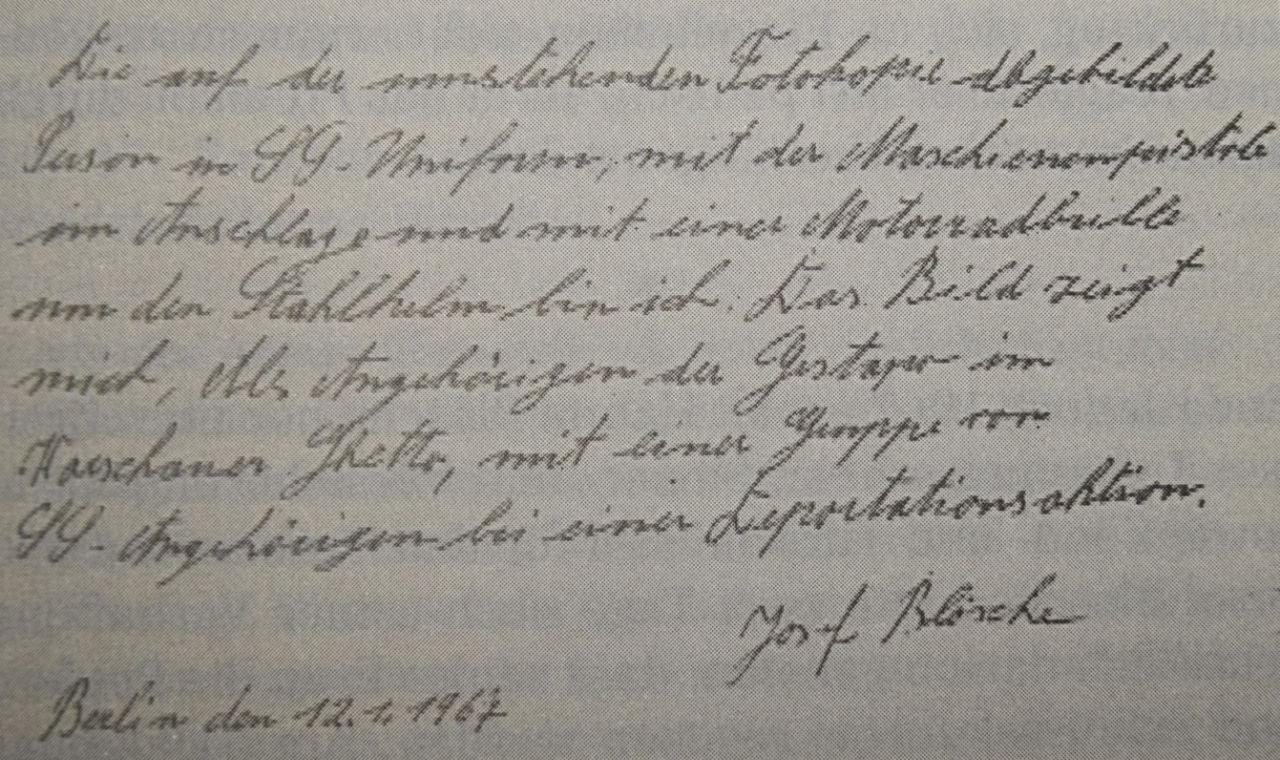 Die auf der umstehenden Fotokopie abgebildete
Person in SS-Uniform, mit der Maschienenpistole
im Anschlage und mit einer Motorradbrille
um den Stahlhelm bin ich. Das Bild zeigt
mich, Als Angehörigen der Gestapo im
Warschauer Ghetto, mit einer Gruppe von
SS-Angehörigen bei einer Deportationsaktion.
Josef Blösche
Berlin den 12.1.1967